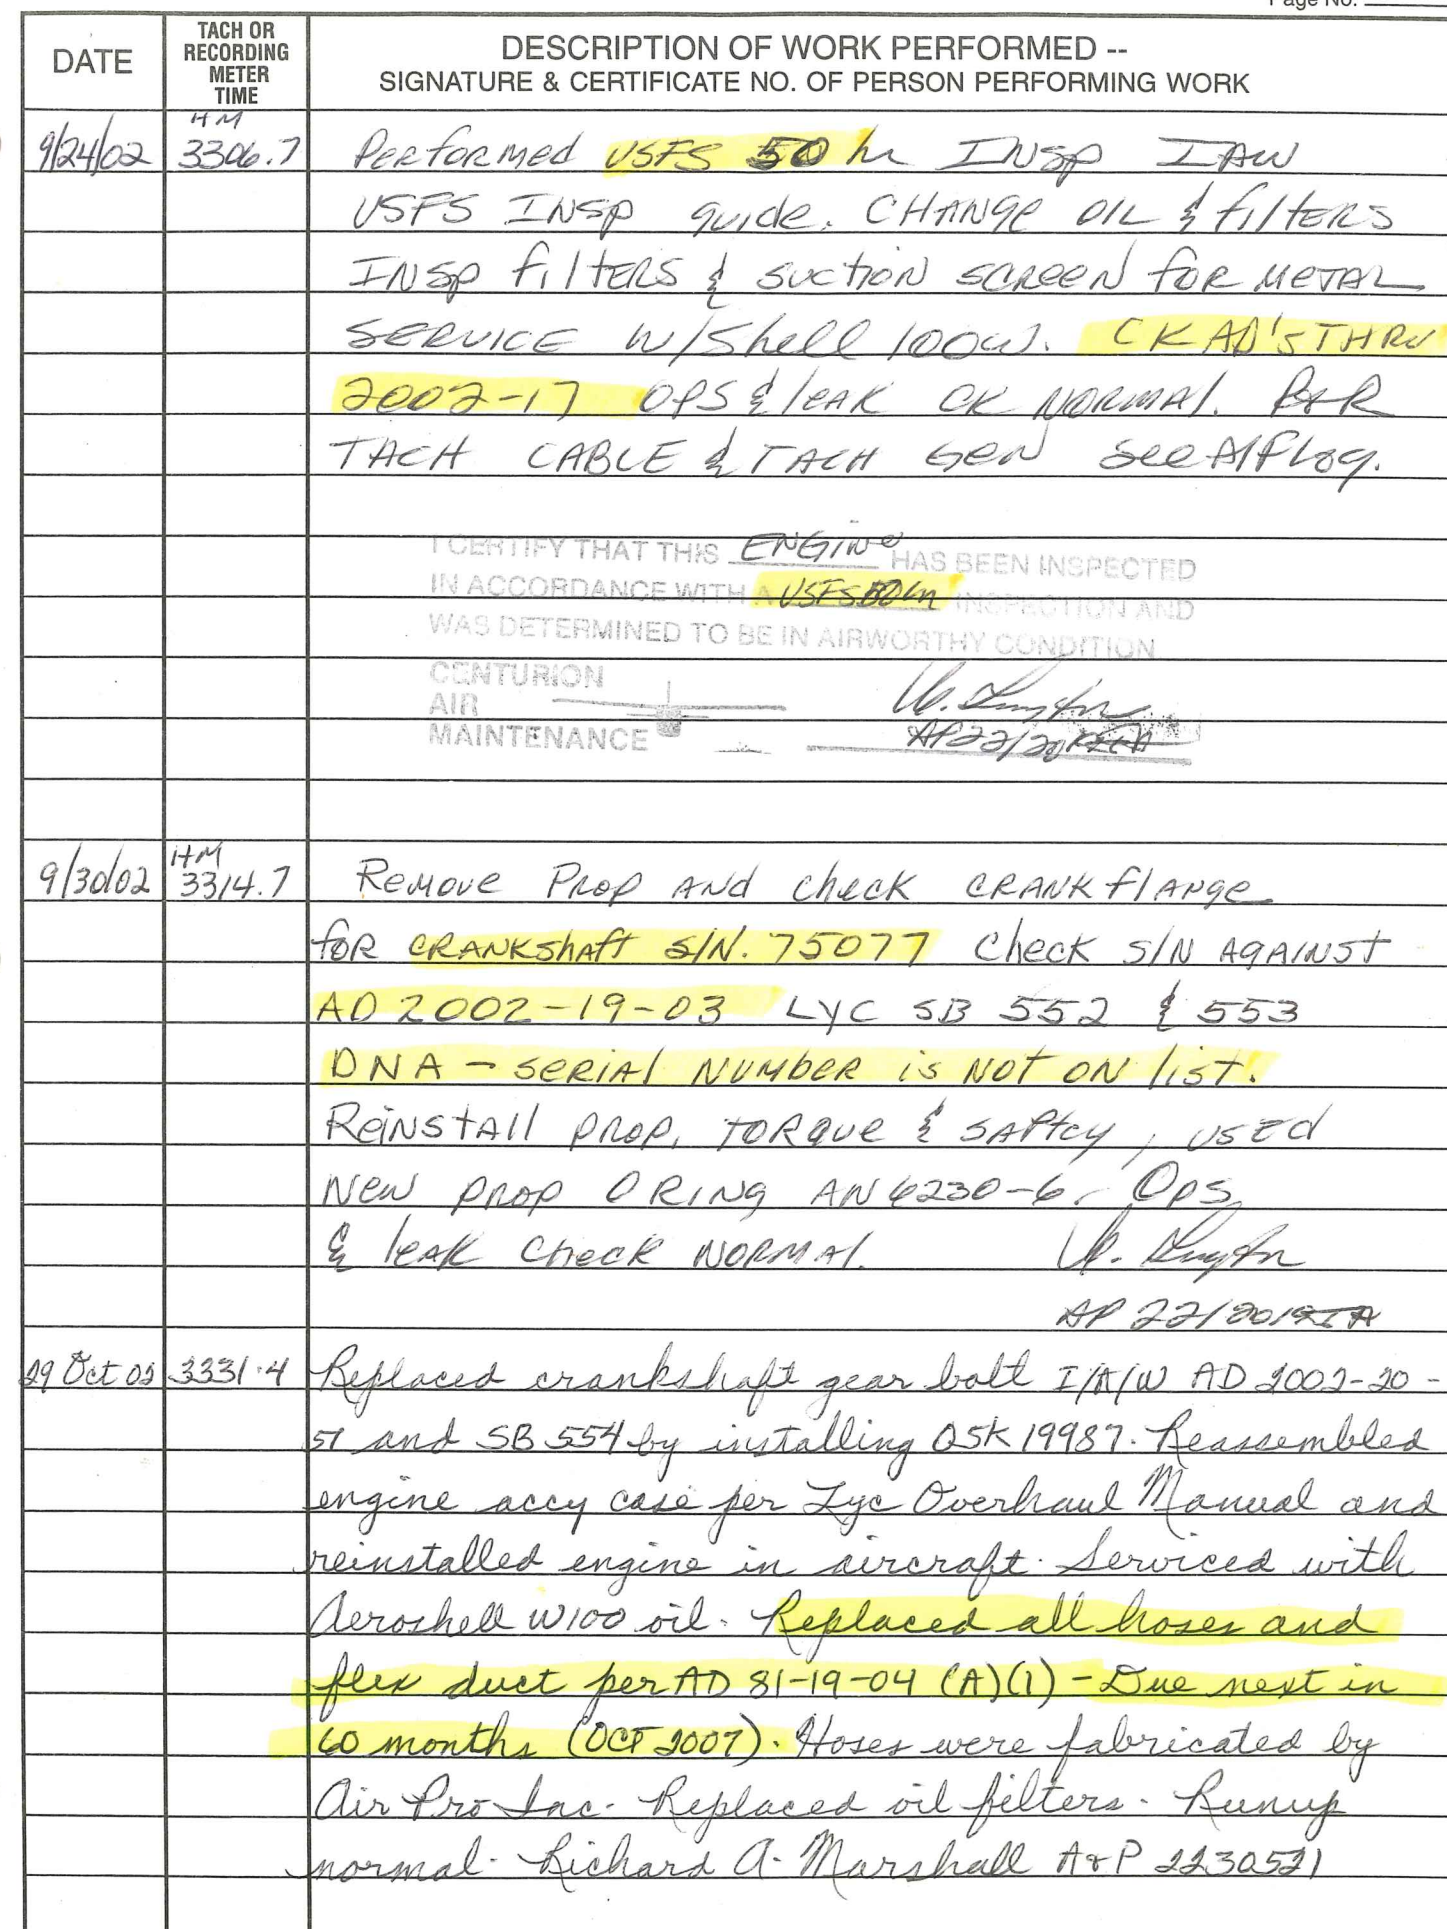 Page No.
DATE
TACH OR
RECORDING
METER
TIME
DESCRIPTION OF WORK PERFORMED --
SIGNATURE & CERTIFICATE NO. OF PERSON PERFORMING WORK
9/24/02 HM 3306.7 Performed USFS 50 hr INSP IAW
USFS INSP guide. CHANGE OIL & filters
INSP filters & suction screen for metal
SERVICE W/Shell 100W. CK AD'S THRU
2002-17 OPS & leak CK NORMAL. R&R
TACH CABLE & TACH GEN See A/F Log.
I CERTIFY THAT THIS ENGINE HAS BEEN INSPECTED
IN ACCORDANCE WITH A USFS 50 hr INSPECTION AND
WAS DETERMINED TO BE IN AIRWORTHY CONDITION
CENTURION
AIR
MAINTENANCE
9/30/02 HM 3314.7 Remove Prop AND check CRANK flange
for CRANKshaft S/N. 75077 Check S/N AGAINST
AD 2002-19-03 LYC SB 552 & 553
DNA - SERIAL NUMBER is NOT ON list.
Reinstall prop, TORQUE & SAFtey, USED
New prop O RING AN 6230-6. Ops
& leak check NORMAL.
29 Oct 02 3331.4 Replaced crankshaft gear bolt I/A/W AD 2002-20-
51 and SB 554 by installing 05K19987. Reassembled
engine accy case per Lyc Overhaul Manual and
reinstalled engine in aircraft. Serviced with
Aeroshell W100 oil. Replaced all hoses and
flex duct per AD 81-19-04 (A)(1) - Due next in
60 months (OCT 2007). Hoses were fabricated by
Air Pro Inc. Replaced oil filters. Runup
normal. Richard A. Marshall A&P 2230521